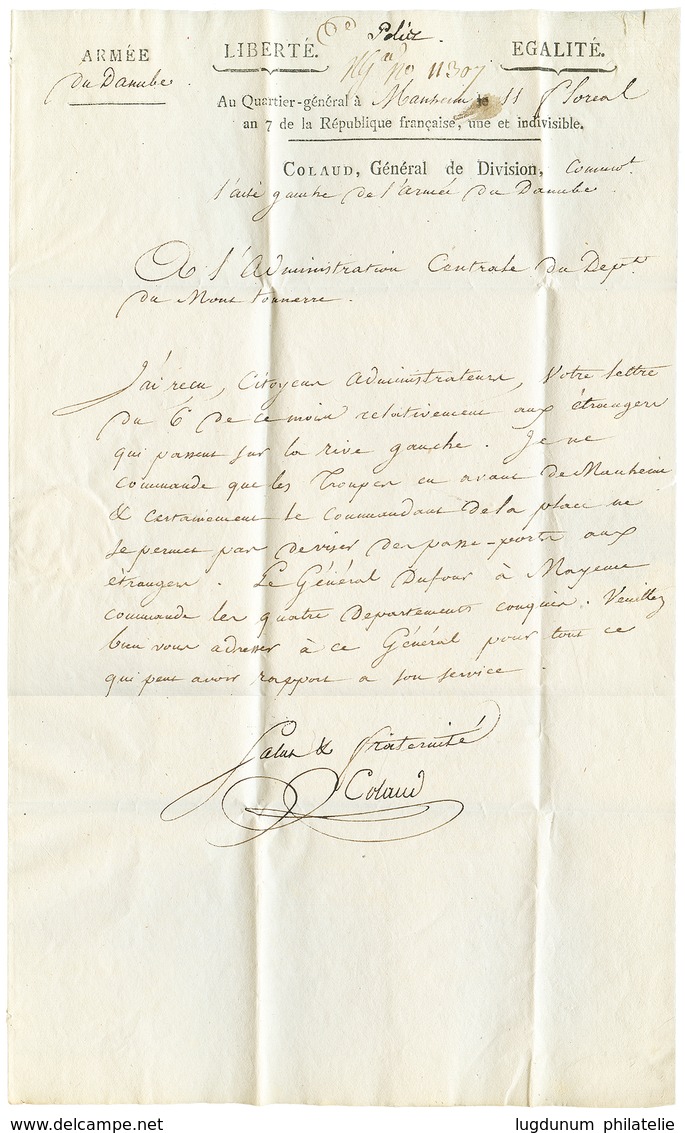 Police
ARMÉE LIBERTÉ. EGALITÉ.
du Danube No 11307
Au Quartier-général à Manheim le 11 floreal
an 7 de la République française, une et indivisible.
COLAUD, Général de Division, Commdt
l'aile gauche de l'Armée du Danube
A l'Administration Centrale du Dept
du Mont tonnerre.
J'ai reçu, Citoyens administrateurs, votre lettre
du 6 de ce mois relativement aux étrangers
qui passent sur la rive gauche. Je ne
commande que les Troupes en avant de Manheim
& certainement le commandant de la place ne
se permet pas de viser des passe-ports aux
étrangers. Le Général Dufour à Mayence
commande les quatre Departements conquis. Veuillez
bien vous adresser à ce Général pour tout ce
qui peut avoir rapport a son service.
Salut & fraternité
Colaud
www.delcampe.net lugdunum philatelie